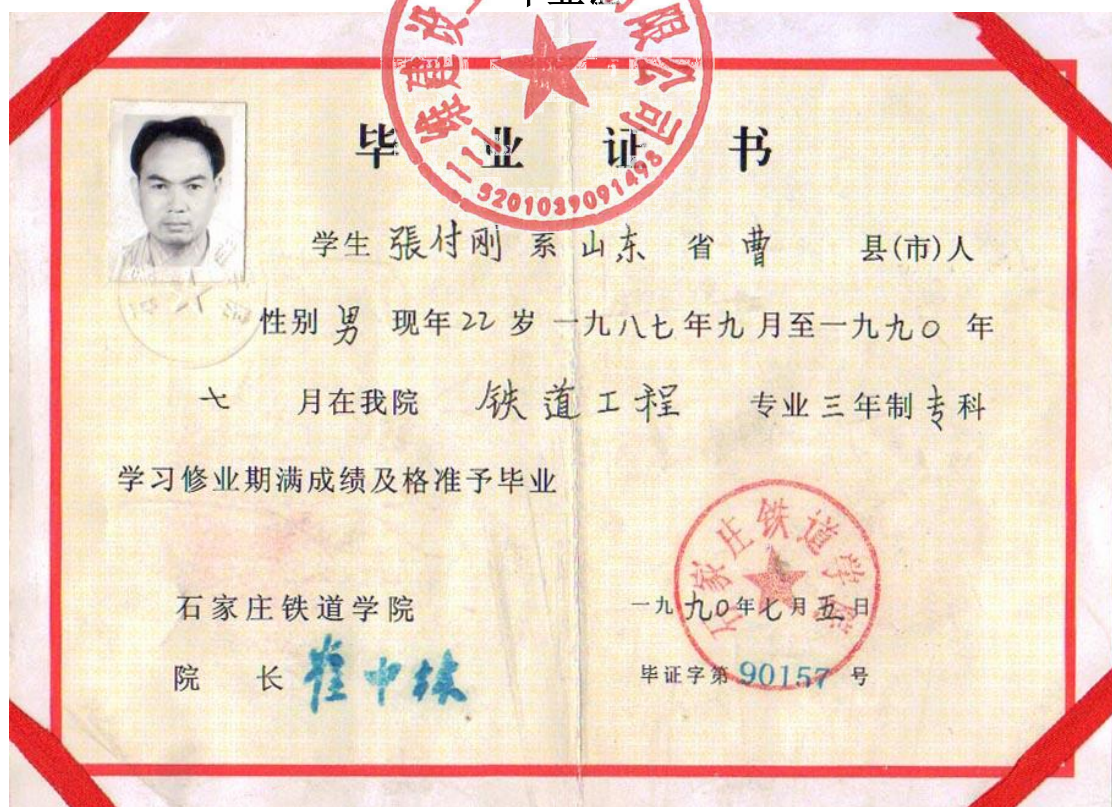 毕业证
毕业证书
学生 張付刚 系 山东 省 曹 县(市)人
性别 男 现年 22 岁 一九八七年九月至一九九〇年
七 月在我院 铁道工程 专业三年制专科
学习修业期满成绩及格准予毕业
石家庄铁道学院
一九九〇年七月五日
院 长 崔中林
毕证字第 90157 号
石家庄铁道学院
铁建设
限公司
5201039091498